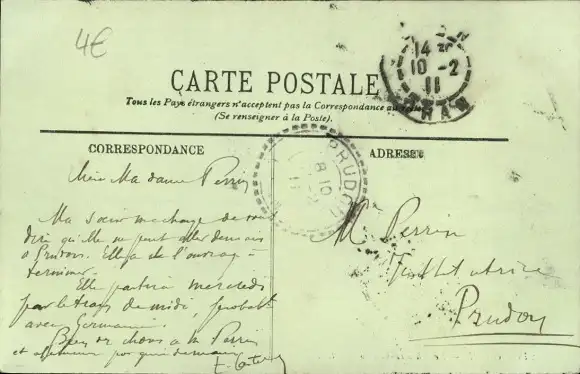 4€
14
10 - 2
11
ORAN
CARTE POSTALE
Tous les Pays étrangers n'acceptent pas la Correspondance au
(Se renseigner à la Poste).
CORRESPONDANCE
ADRESSE
PRUDON
8 10
Madame Perrin
Ma sœur me charge de vous
dire qu'elle ne peut aller demain
à Prudon. Elle a de l'ouvrage à
terminer.
Elle partira mercredi
par le train de midi, probabt
avec Germaine.
Bien de choses à M. Perrin
et
Me Perrin
Institutrice
Prudon